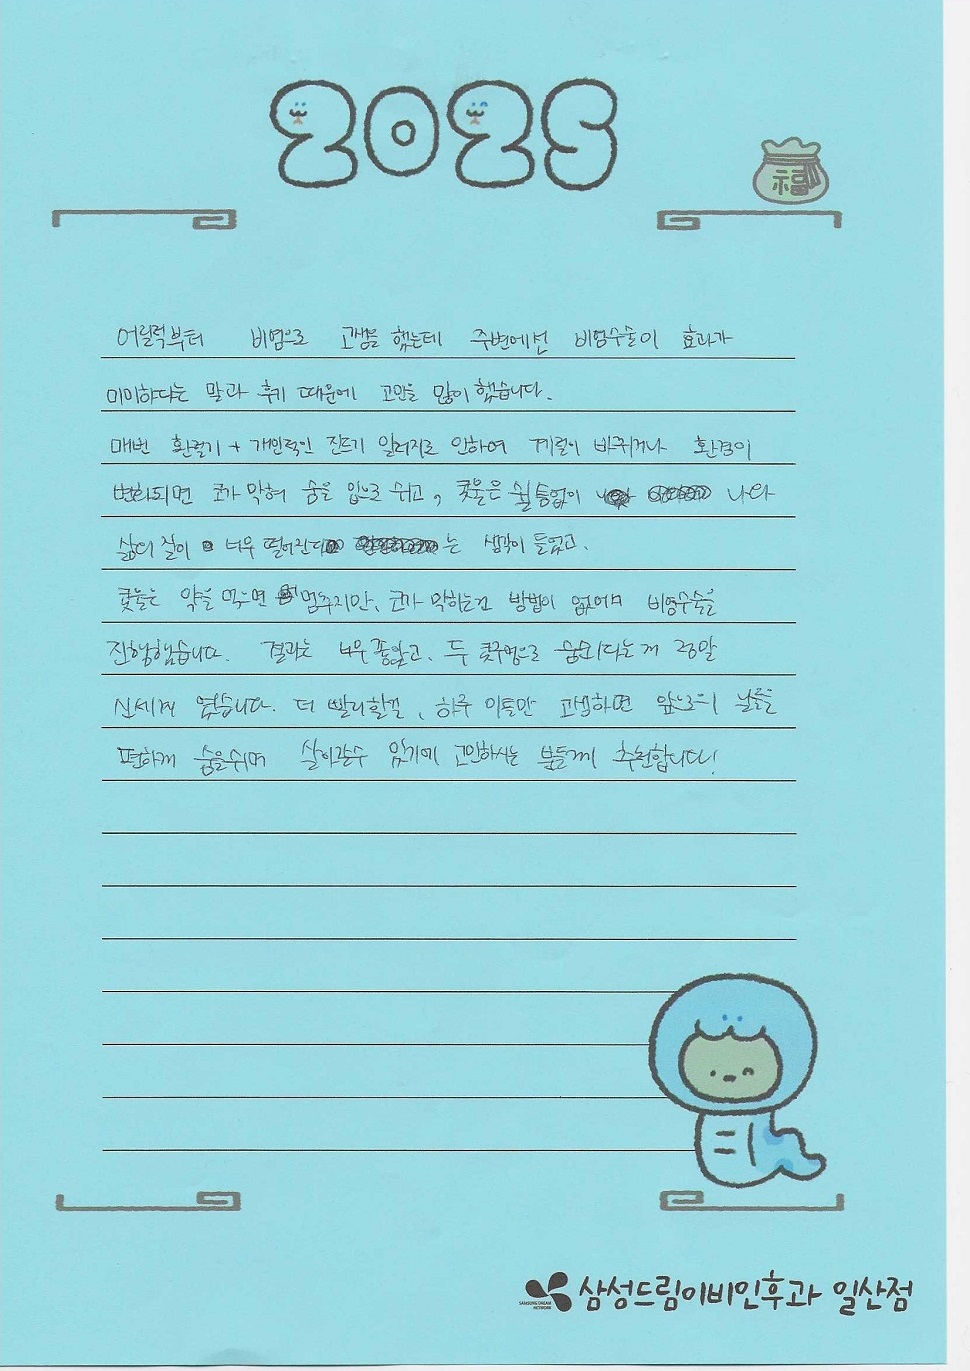 2025
福
어릴적부터 비염으로 고생을 했는데 주변에선 비염수술이 효과가
미미하다는 말과 후기 때문에 고민을 많이 했습니다.
매번 환절기 + 개인적인 진드기 알러지로 인하여 계절이 바뀌거나 환경이
변화되면 코가 막혀 숨을 입으로 쉬고, 콧물은 쉴틈없이 나와
삶의 질이 너무 떨어진다는 생각이 들었고.
콧물은 약을 먹으면 멈추지만, 코가 막히는건 방법이 없어서 비염수술을
진행했습니다. 결과는 너무 좋았고, 두 콧구멍으로 숨쉬다는게 정말
신세계 였습니다. 더 빨리할걸, 하루 이틀만 고생하면 앞으로의 날들을
편하게 숨을쉬며 살아갈수 있기에 고민하시는 분들께 추천합니다!
SAMSUNG DREAM NETWORK
삼성드림이비인후과 일산점